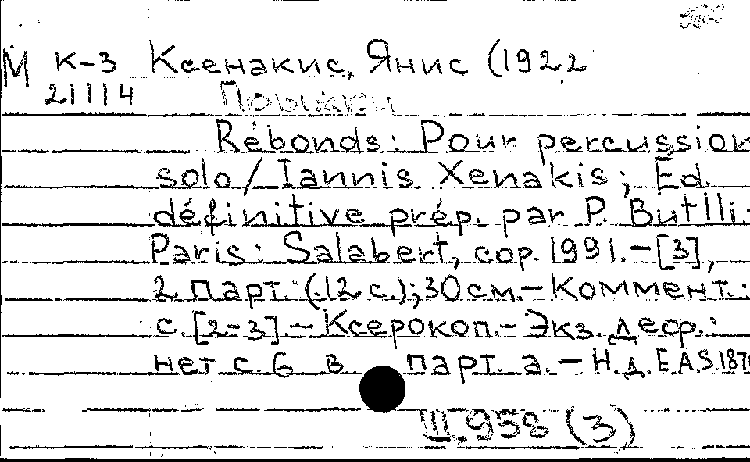 М К-3 Ксенакис, Янис (1922
21114 Прыжки
Rebonds: Pour percussion
solo / Iannis Xenakis; Ed.
définitive prép. par P. Butlli.
Paris: Salabert, cop. 1991. – [3],
2 парт. (12 с.); 30 см. – Коммент.:
с. [2-3]. – Ксерокоп. – Экз. деф.:
нет с. 6 в парт. а. – Н. д. E.A.S. 187
III.958 (3)